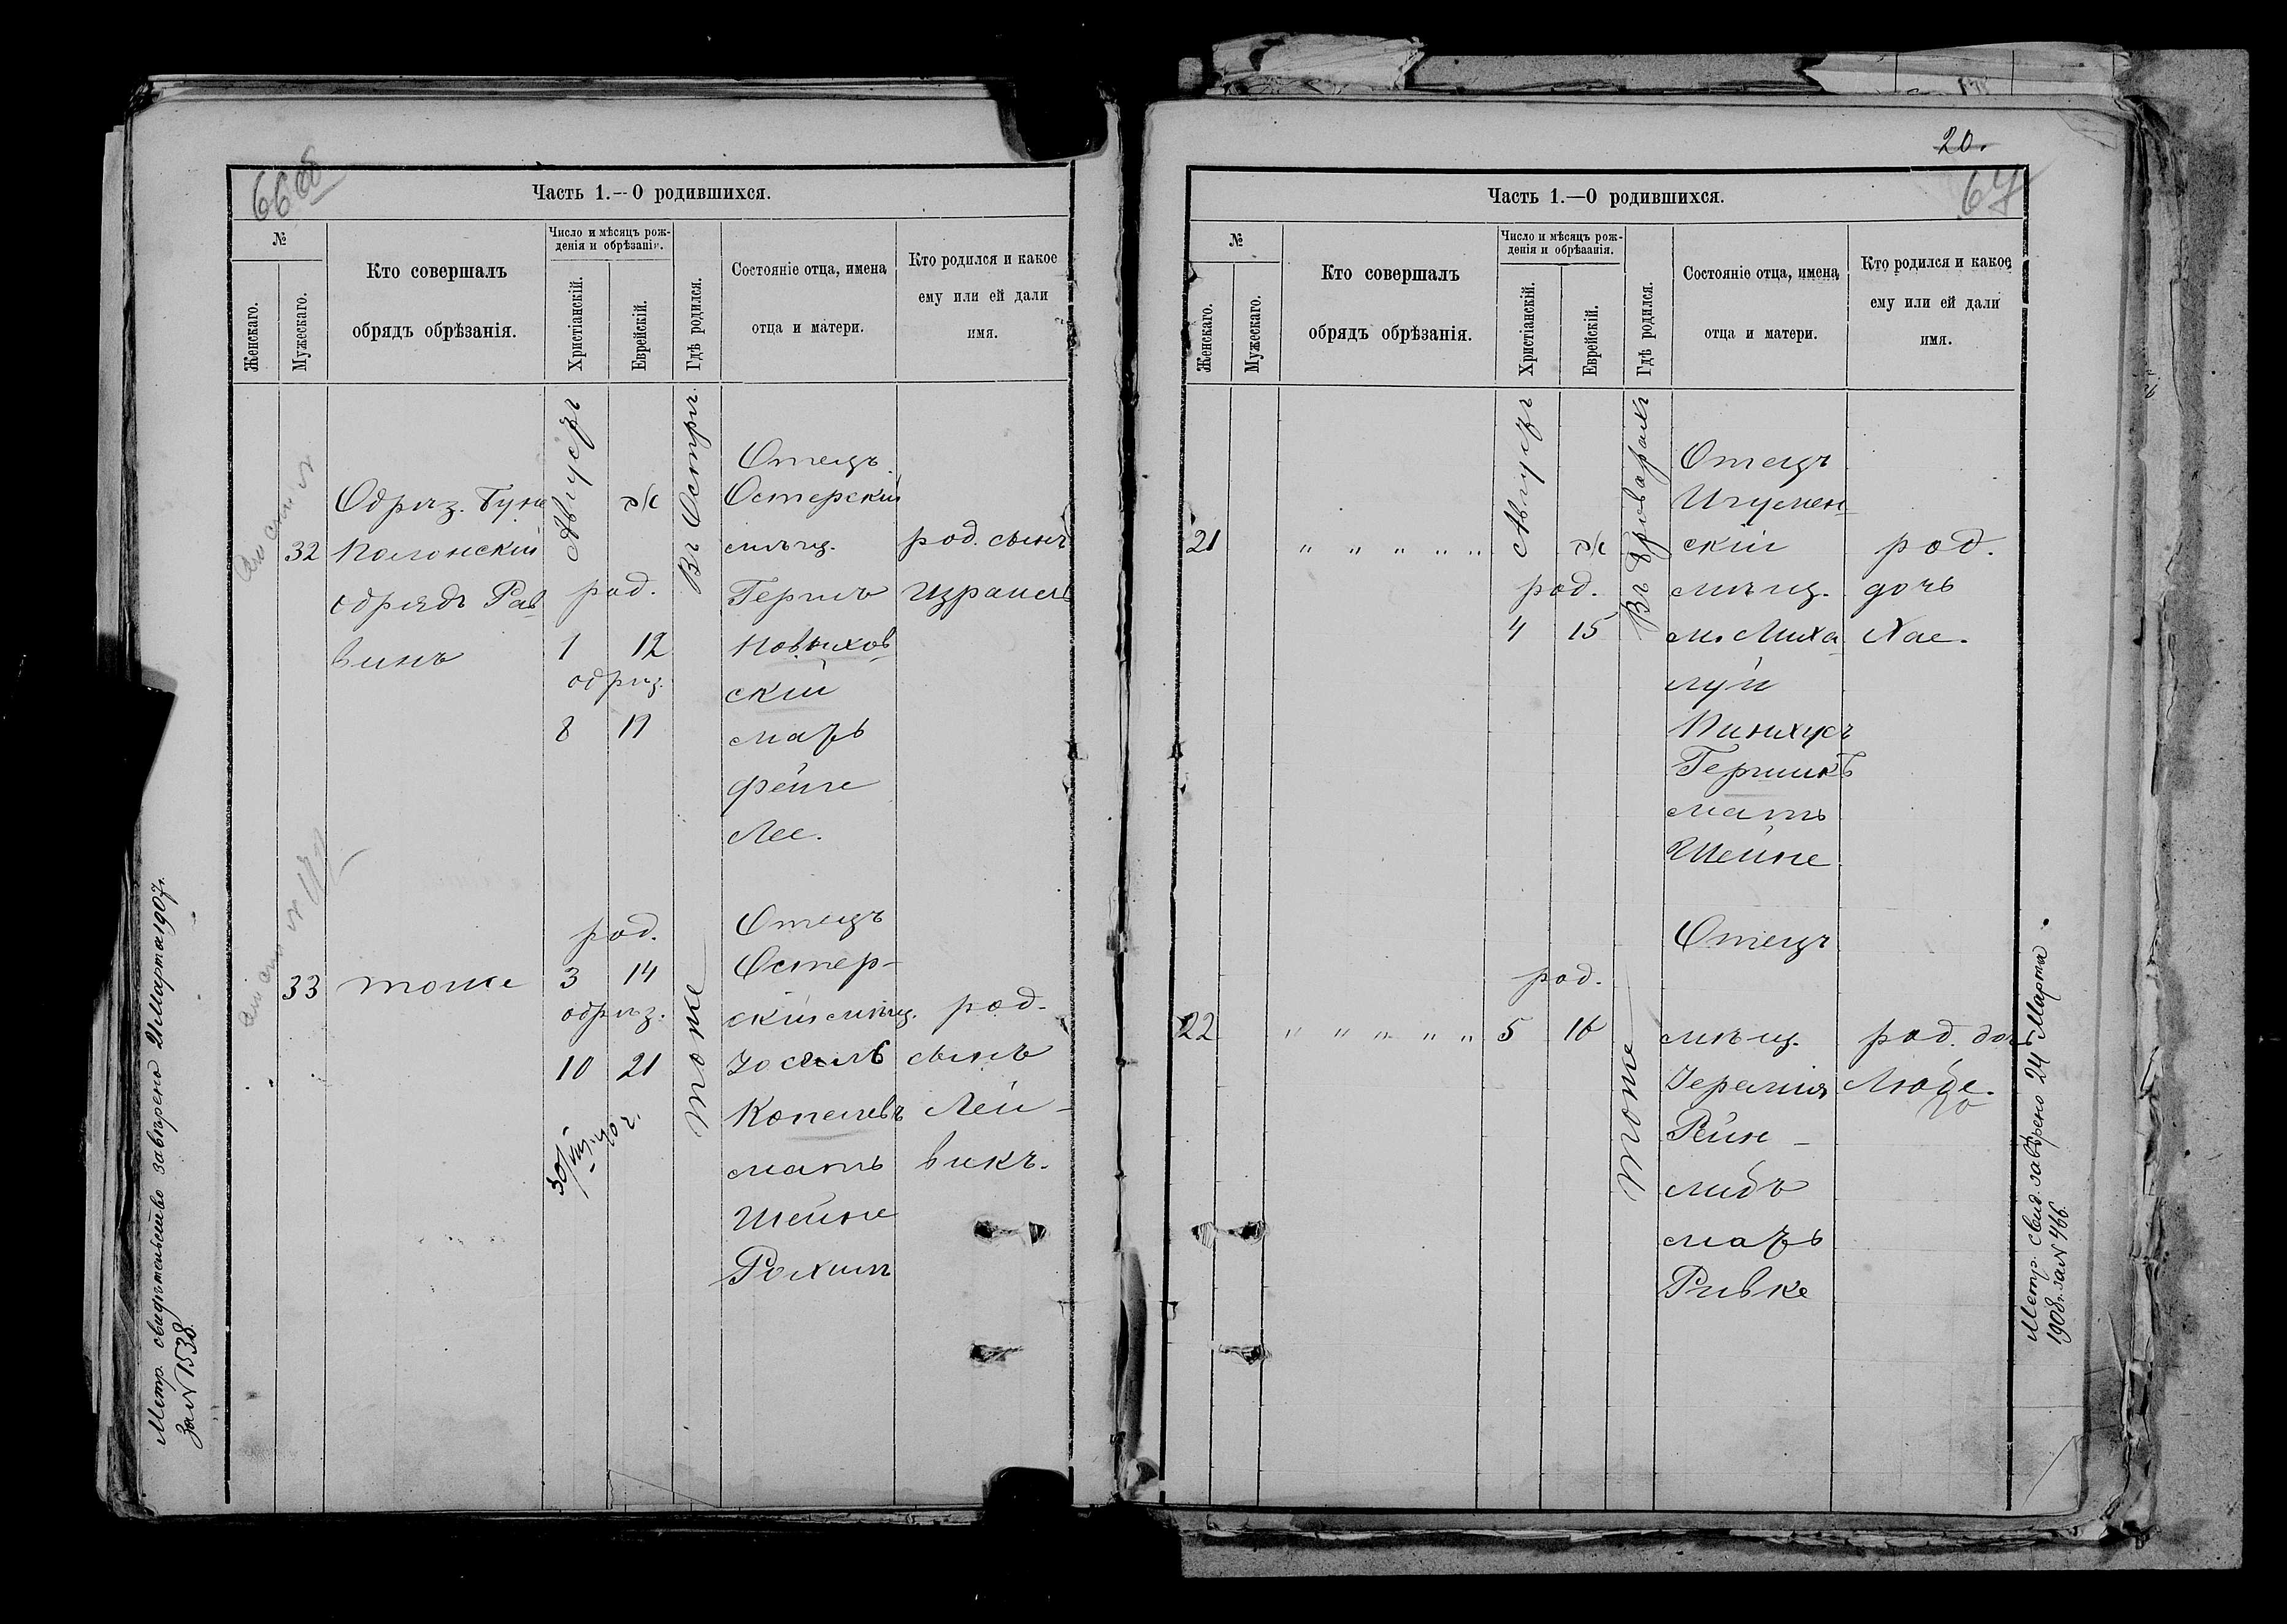 66 об
Часть 1.—О родившихся.
№
Женскаго.
Мужескаго.
Кто совершалъ
обрядъ обрѣзанія.
Число и мѣсяцъ рож-
денія и обрѣзанія.
Христіанскій.
Еврейскій.
Гдѣ родился.
Состояніе отца, имена
отца и матери.
Кто родился и какое
ему или ей дали
имя.
32
Полонскій
обрядъ Рав
винъ
Августъ
род.
1 12
обрѣз.
8 19
Въ Острѣ
Отецъ
Остерскій
мѣщ.
Гершъ
Новыхов
скій
мать
Фейге
Лее.
род. сынъ
Израиль
33
тоже
род.
3 14
обрѣз.
10 21
тоже
Отецъ
Остер-
скій мѣщ.
Іосель
Копелевъ
мать
Шейне
Рохиль
род.
сынъ
Лей-
викъ.
Метр. свидѣтельство завѣрено 21 Марта 1907г.
За N 1538.
20.
67
Часть 1.—О родившихся.
№
Женскаго.
Мужескаго.
Кто совершалъ
обрядъ обрѣзанія.
Число и мѣсяцъ рож-
денія и обрѣзанія.
Христіанскій.
Еврейскій.
Гдѣ родился.
Состояніе отца, имена
отца и матери.
Кто родился и какое
ему или ей дали
имя.
21
" " " " "
Августъ
род.
4 15
Въ Броварахъ
Отецъ
Игумен-
скій
мѣщ.
луй
Пинхусъ
мать
Шейне
род.
дочь
Хае.
22
" " " " "
род.
5 16
тоже
Отецъ
мѣщ.
Рейн-
либъ
мать
Ривке
род. доч
Любе.
Метр. свид. завѣрено 24 Марта
1908г. за N 466.